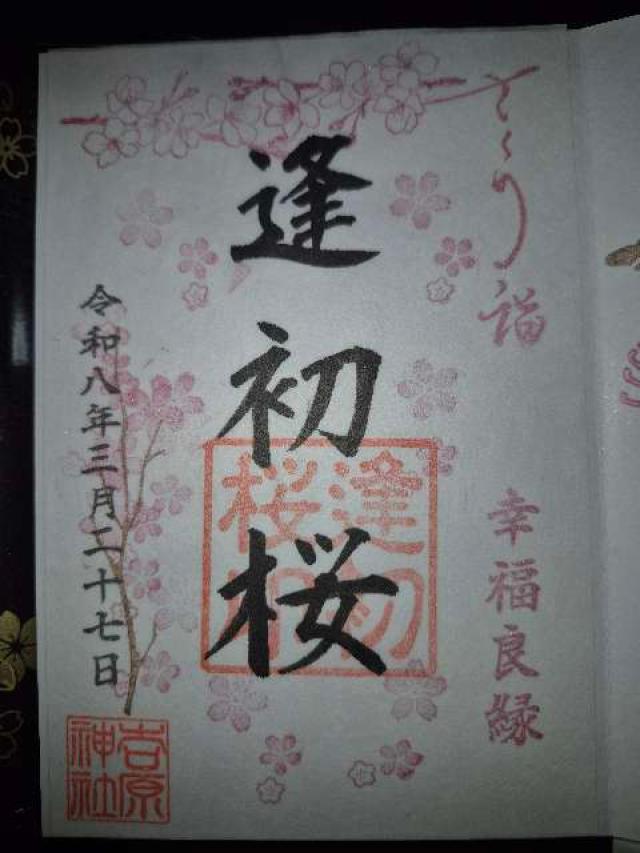 詣
幸福良縁
逢初桜
逢初
桜印
令和八年三月二十七日
吉原
神社